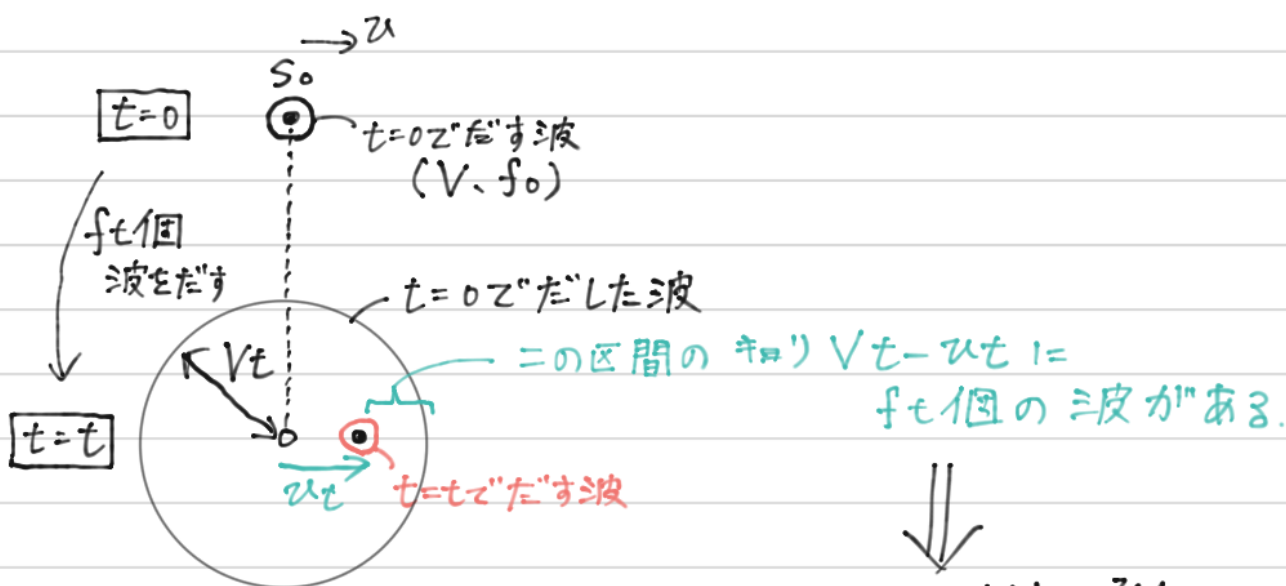 →v
S₀
t=0
t=0でだす波
(V、f₀)
ft個
波をだす
t=0でだした波
Vt
この区間のキョリ Vt-vtに
ft個の波がある.
t=t
vt
t=tでだす波